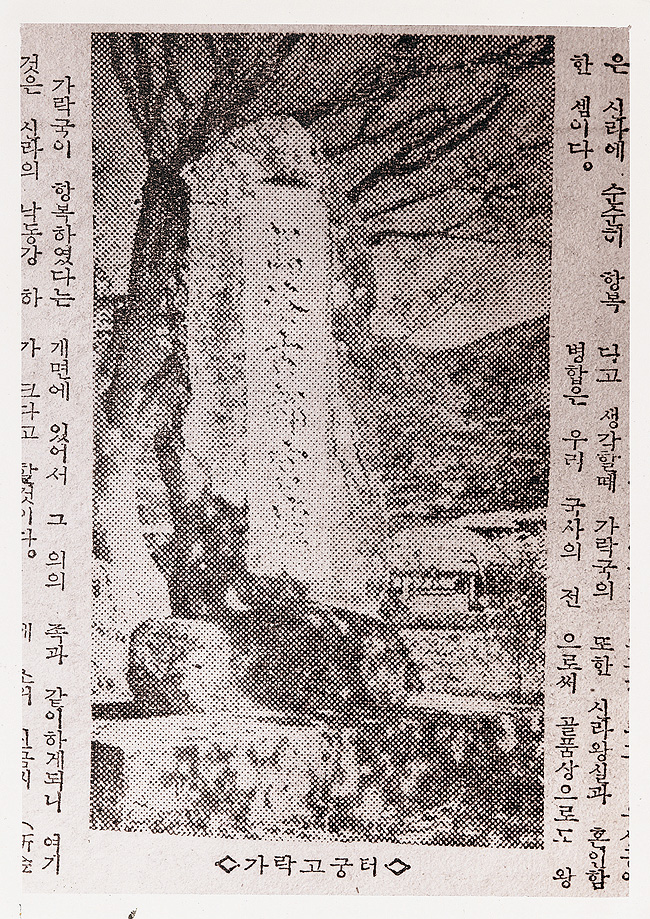 은 신라에 순순히 항복
한 셈이다。
가락국이 항복하였다는
것은 신라의 낙동강 하
다고 생각할때 가락국의
병합은 우리 국사의 전
개면에 있어서 그 의의
가 크다고 할것이다。
또한 신라왕실과 혼인함
으로써 골품상으로도 왕
족과 같이하게되니 여기
◇가락고궁터◇